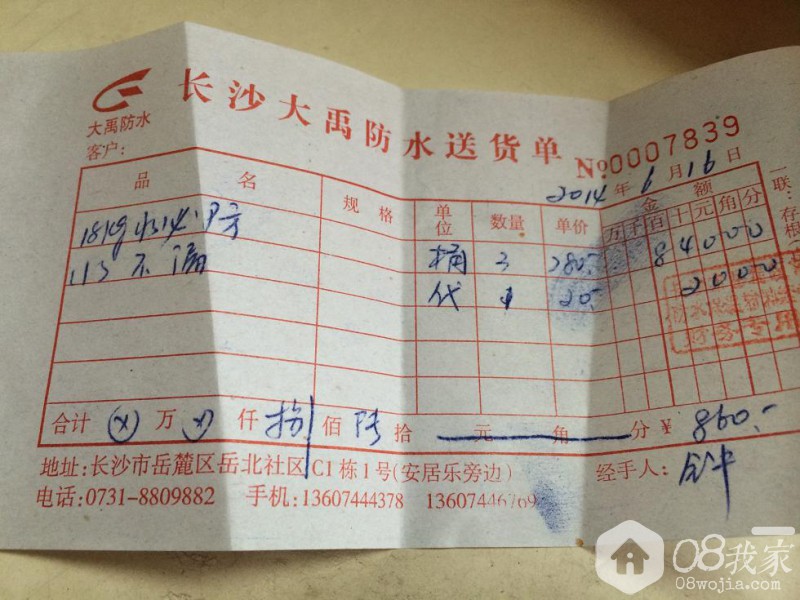 长沙大禹防水送货单
大禹防水
№0007839
客户:
2014年6月16日
品名 规格 单位 数量 单价 金额
万千百十元角分
18kg 桶 3 280.- 84000
不漏 代 1 20.- 2000
一联:存根
财务专用
合计 ⊗ 万 ⊗ 仟 捌 佰 陆 拾 元 角 分 ¥ 860.-
地址:长沙市岳麓区岳北社区C1栋1号(安居乐旁边) 经手人:
电话:0731-8809882 手机:13607444378 13607446769
08我家
08wojia.com